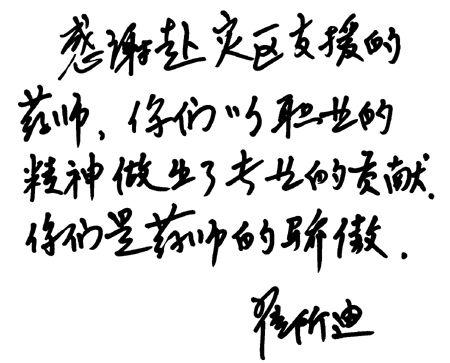 感谢赴灾区支援的
药师，你们以职业的
精神做出了专业的贡献.
你们是药师的骄傲.
翟所迪